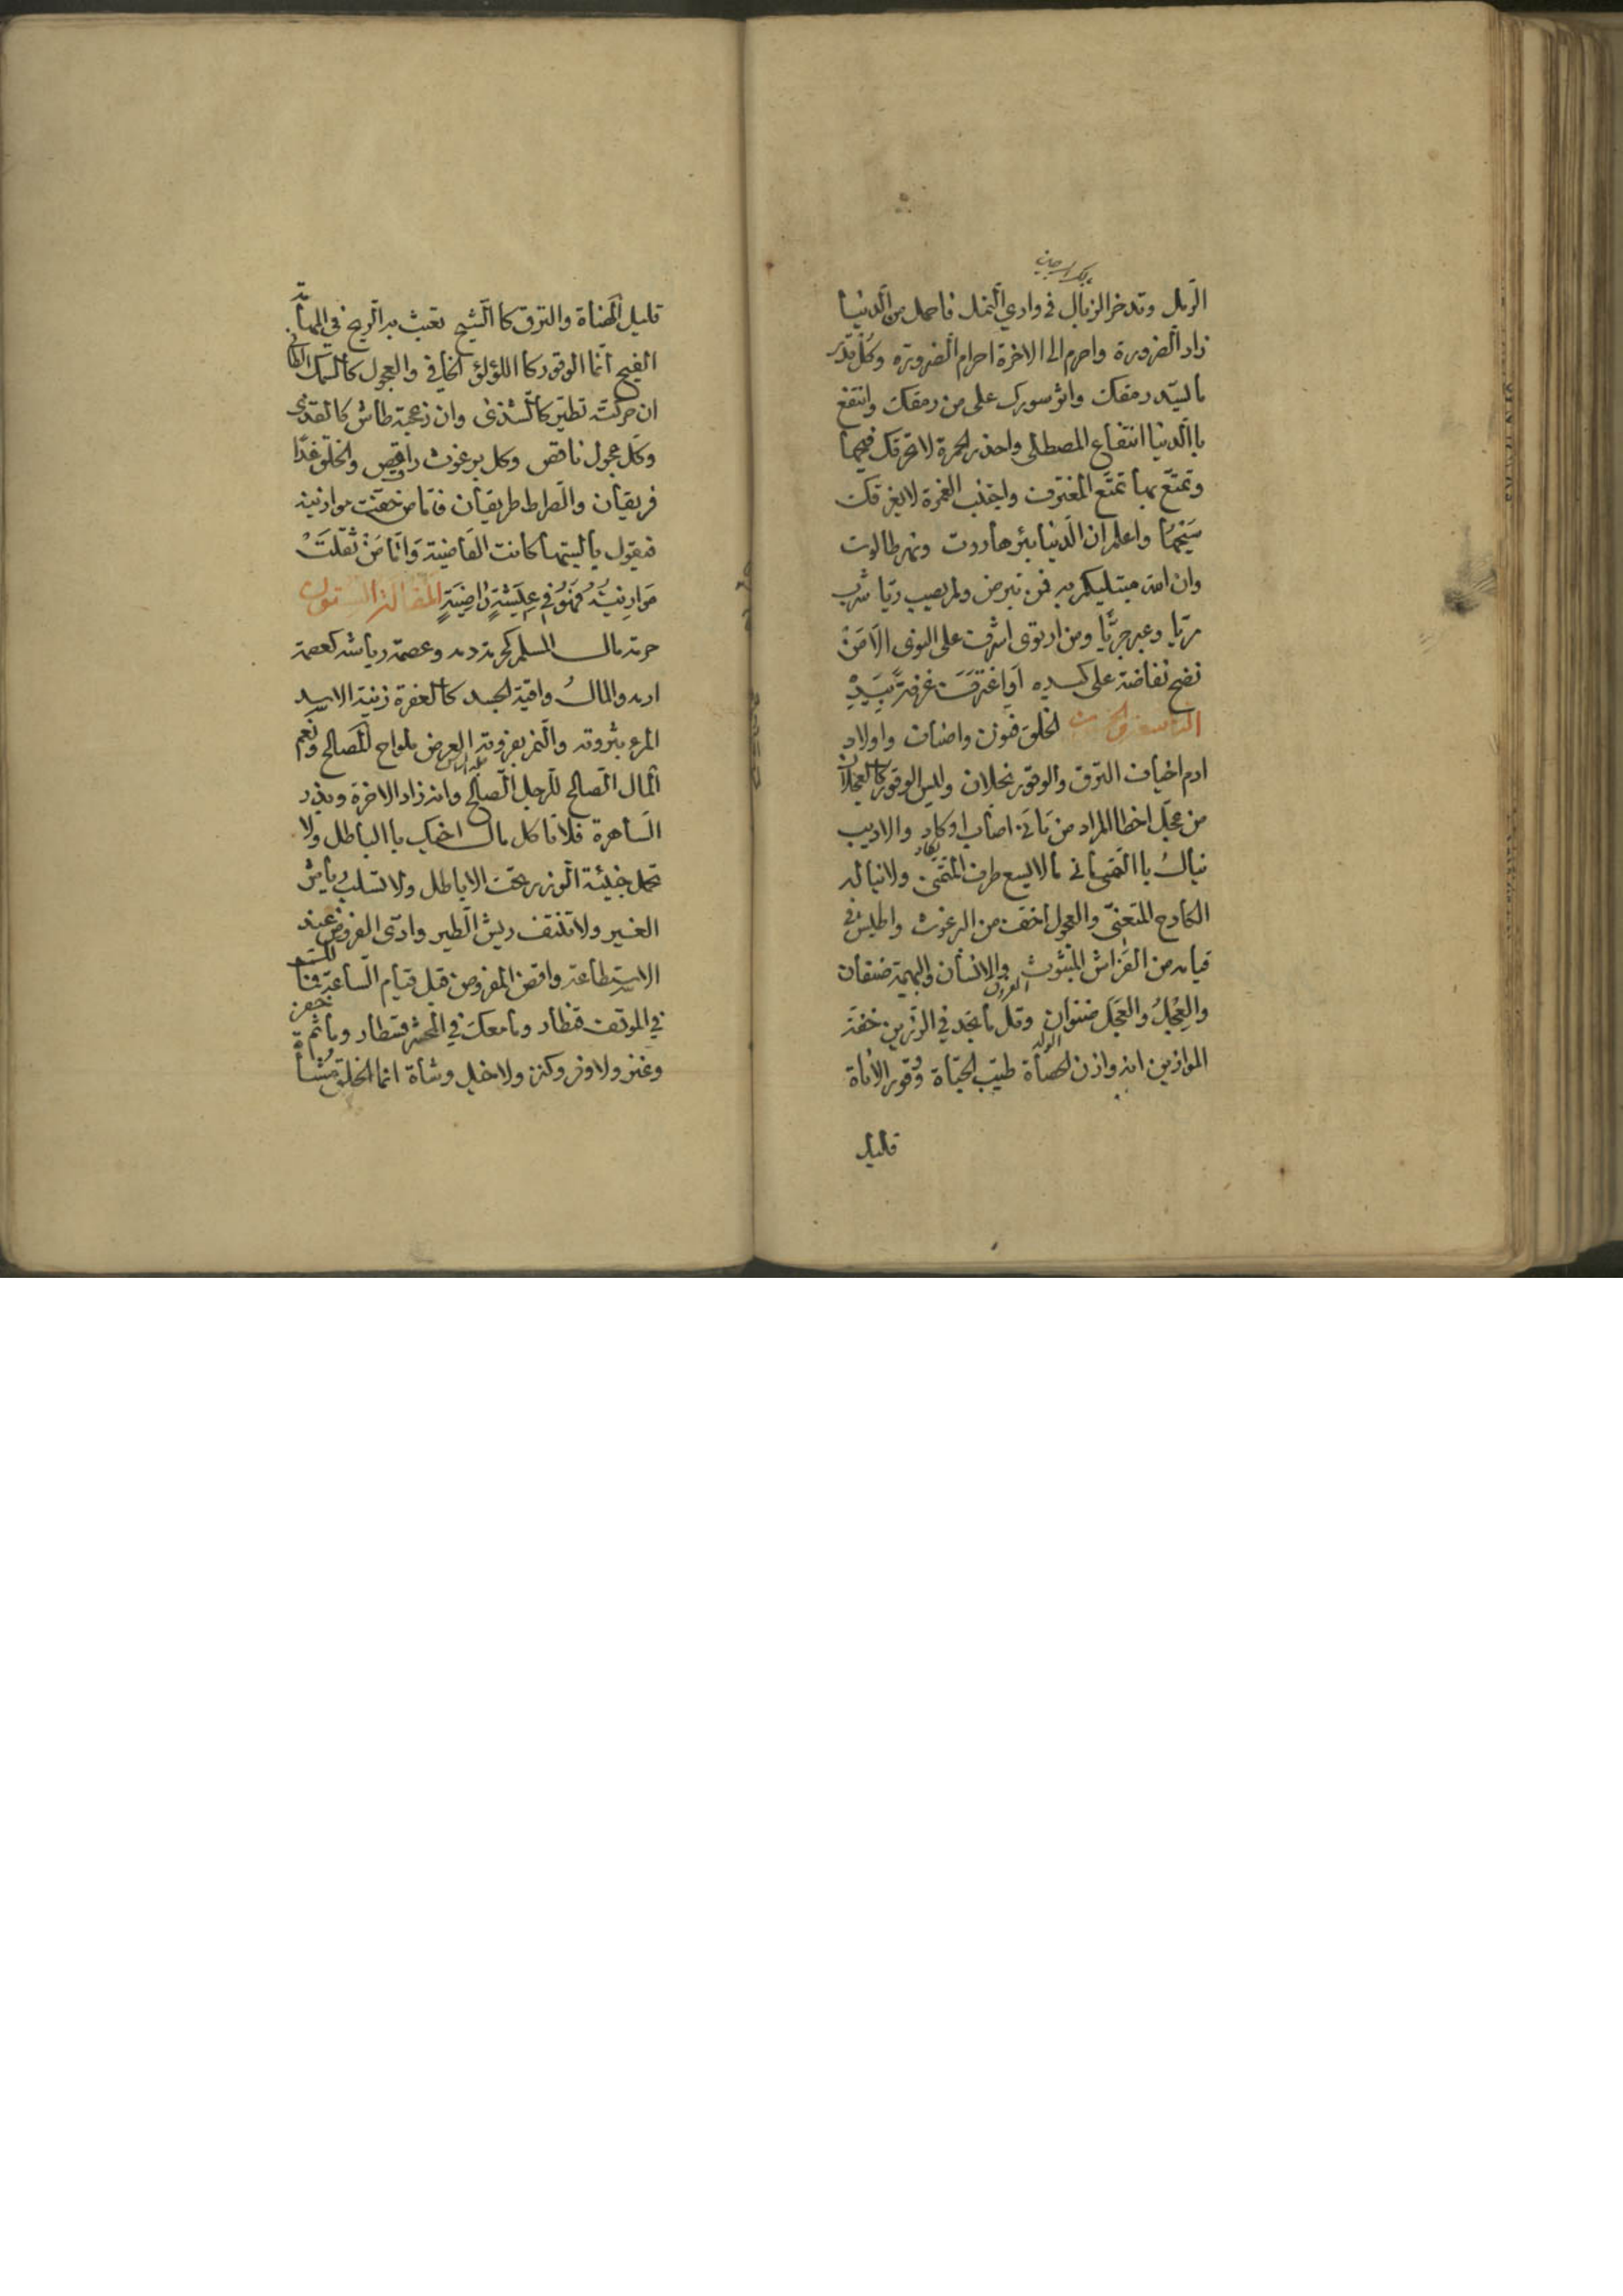 الرمل وتدخر الزبال في وادي النمل فاحمل من الدنيا
زاد الضرورة واحرم الى الاخرة احرام الضرورة وكل بقدر
ما ليسد رمقك واثر سورك على من رمقك وانتفع
باالدنيا انتفاع المصطلى واحذر الجمرة لا تحرقك فيحها
وتمتع بها تمتع المغترف واجتنب الغمرة لا يغرقك
سيحها واعلم ان الدنيا بئر هاروت ونهر طالوت
وان الله مبتليكم به فمن تبرض ولم يصب ريا شرب
مريا وعبر جريا ومن ارتوى اشرف على التوى الا من
نضح نفاضة على كبده او اغترف غرفة بيده
التاسعة والخمسون الخلق فنون واصناف واولاد
ادم اخياف النزق والوقور نجلان وليس الوقور كالعجلان
من عجل اخطا المراد من تأنى اصاب او كاد والاديب
ينال باالتمني ما لا يسع طرف المتمني ولا يناله
الكادح المتعني والعجول اخف من البرغوث واطيش في
قيامه من الفراش المبثوث والانسان والبهيمة صنفان
والعجل والعجل صنوان وقل ما تجد في الوزرين خفة
الموازين انه وازن الحصاة طيب الحياة وقور الاناة
قليل
قليل الهناة والنزق كاالشيح تعبث به الريح في المهامه
الفيح انما الوقور كااللؤلؤ الخافي والعجول كاالسمك الطافي
ان حركته تطير كاالشذى وان زعجته طاش كالقذى
وكل عجول ناقص وكل برغوث راقص والخلق غدا
فريقان والصراط طريقان فاما من خفت موازينه
فيقول ياليتها كانت القاضية واما من ثقلت
موازينه فهو في عيشة راضية المقالة الستون
حرمة مال المسلم كحرمة دمه وعصمة رياشه كعصمة
ادمه والمال واقية الجسد كاالعفرة زينة الاسد
المرء بثروته والنمر بفروته العرض بلواح المصالح ونعم
المال الصالح للرجل الصالح وانه زاد الاخرة وبذر
الساهرة فلا تاكل مال اخيك باالباطل ولا
تحمل خبيئة الوزر تحت الاباطل ولا تسلب رياش
الغير ولا تنتف ريش الطير وادى الفروض عند
الاستطاعة واقض المفروض قبل قيام الساعة فما
في الموقف قنطار وما معك في المحشر قسطار وما ثمة
وعنز ولا وفر وكنز ولا خيل وشاة انما الخلق مشاة